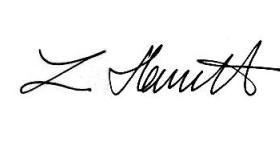 L. Hewitt